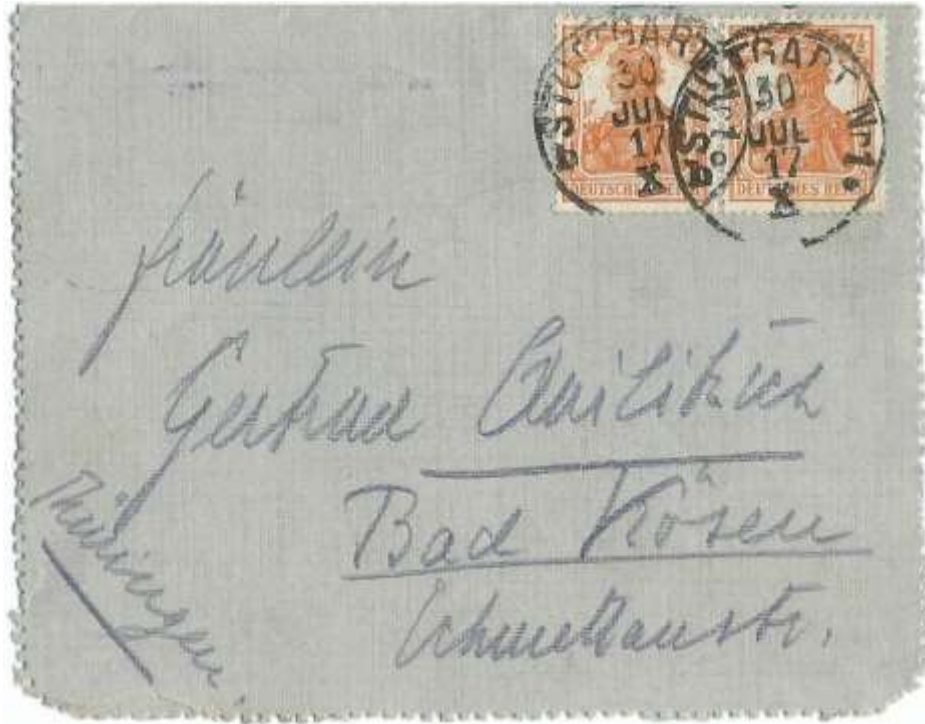 STUTTGART Nr.1.
30
JUL
17
X
STUTTGART Nr.1.
30
JUL
17
X
7½
DEUTSCHES REICH
DEUTSCHES REICH
Fräulein
Gertrud
Bad Kösen
Schmettaustr.
Thüringen.